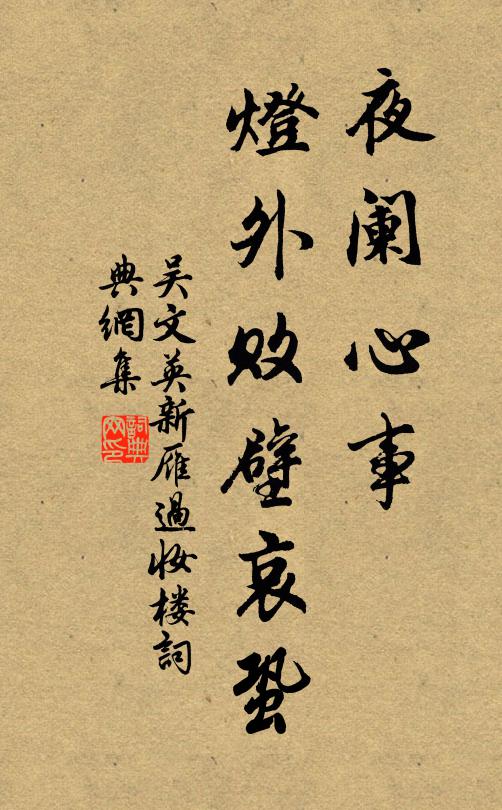 夜阑心事
燈外败壁哀蛩
吴文英新雁過妆楼詞
典網集
詞典網印